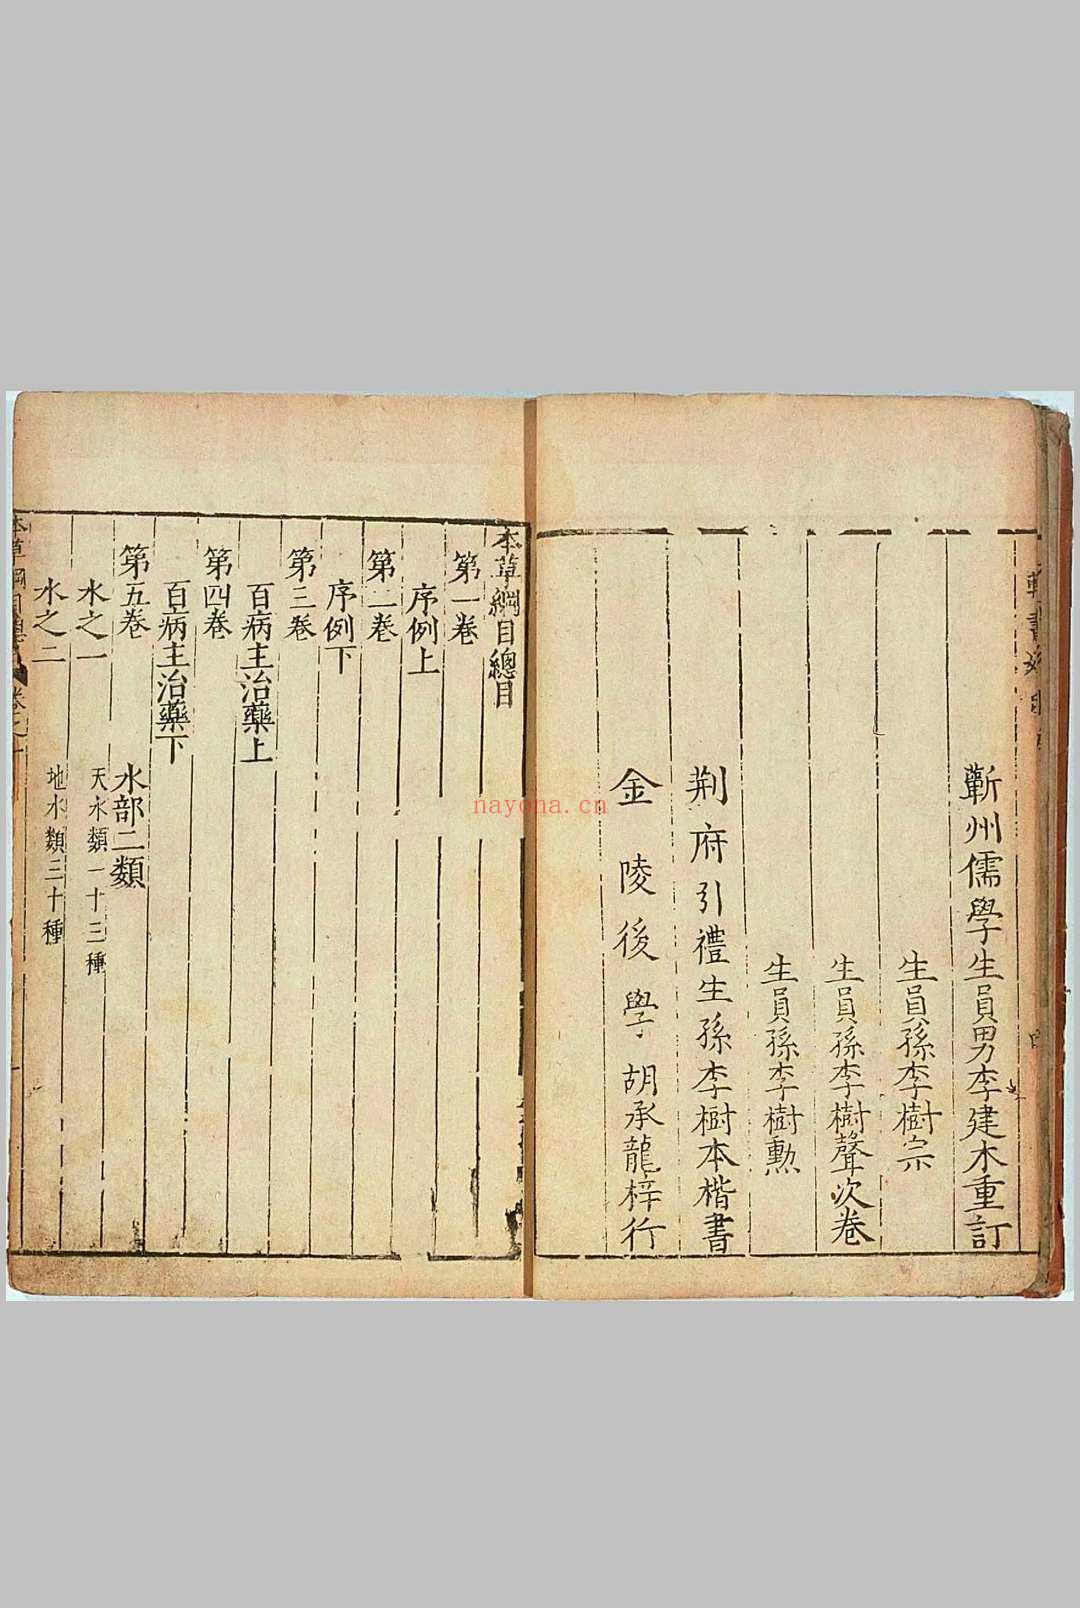 蘄州儒學生員男李建木重訂
生員孫李樹宗
生員孫李樹聲次卷
生員孫李樹勲
荆府引禮生孫李樹本楷書
金陵後學胡承龍梓行
本草綱目總目
第一卷
序例上
第二卷
序例下
第三卷
百病主治藥上
第四卷
百病主治藥下
第五卷 水部二類
水之一 天水類一十三種
水之二 地水類三十種
nayona.cn